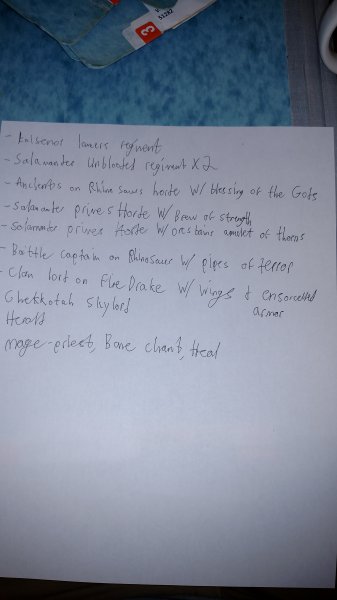 3
51282
- Kaisenor lancers regiment
- Salamander Unblooded regiment X 2
- Ancients on Rhinosaurs horde W/ blessing of the Gods
- Salamander primes Horde W/ Brew of strength
- Salamander primes Horde W/ orcsbane amulet of thorns
- Battle captain on Rhinosaur W/ pipes of terror
- Clan lord on Fire Drake W/ wings & ensorcelled
armor
Ghekkotah skylord
Herald
mage-priest, Bane chant, Heal